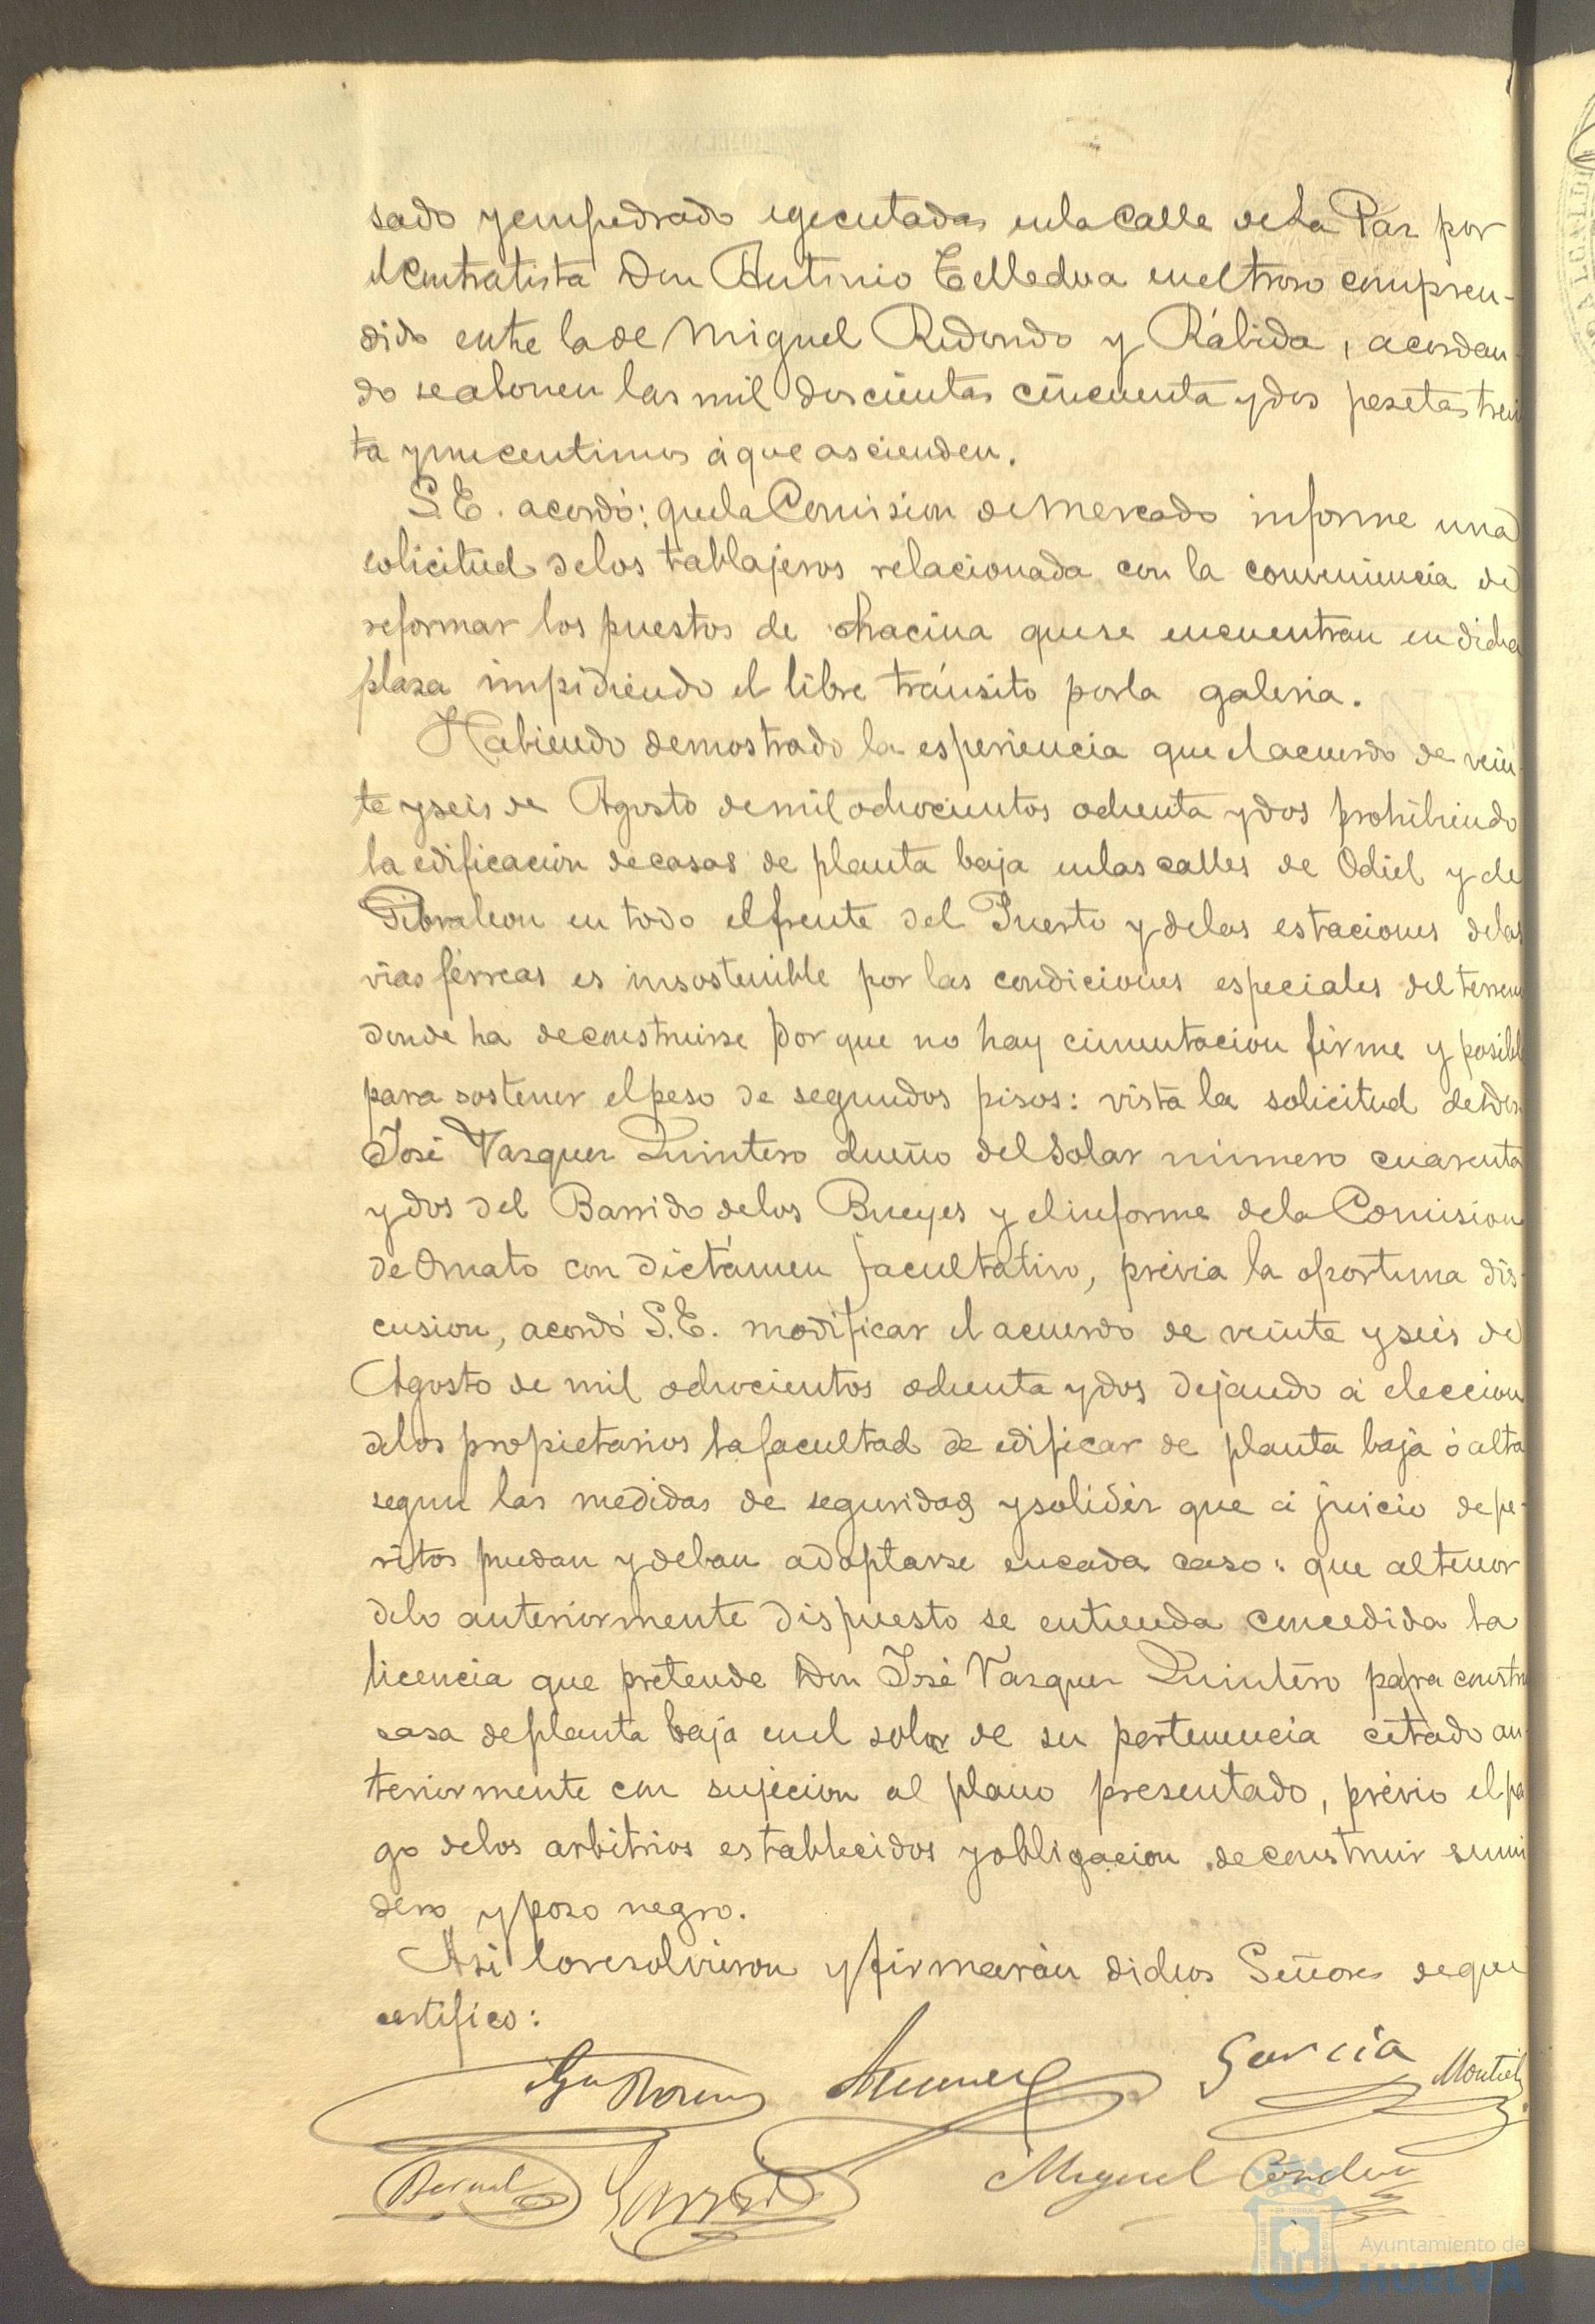 sado y empedrado egecutadas en la calle de La Paz por
el Contratista Don Antonio Telledera en el trozo compren-
dido entre la de Miguel Redondo y Rábida, acordan-
do se abonen las mil doscientas cincuenta y dos pesetas trein
ta y un centimos á que ascienden.
S.E. acordó: que la Comision de Mercado informe una
solicitud de los tablajeros relacionada con la conveniencia de
reformar los puestos de chacina que se encuentran en dicha
plaza impidiendo el libre tránsito por la galeria.
Habiendo demostrado la esperiencia que el acuerdo de vein
te y seis de Agosto de mil ochocientos ochenta y dos prohibiendo
la edificacion de casas de planta baja en las calles de Odiel y de
Gibraleon en todo el frente del Puerto y de las estaciones de las
vias férreas es insostenible por las condiciones especiales del terreno
donde ha de construirse por que no hay cimentacion firme y posible
para sostener el peso de segundos pisos: vista la solicitud de Don
José Vazquez Quintero dueño del Solar número cuarenta
y dos del Barrido de los Bueyes y el informe de la Comision
de Ornato con dictámen facultativo, prévia la oportuna dis-
cusion, acordó S.E. modificar el acuerdo de veinte y seis de
Agosto de mil ochocientos ochenta y dos dejando á eleccion
de los propietarios la facultad de edificar de planta baja ó alta
segun las medidas de seguridad y solidéz que á juicio de pe-
ritos puedan y deban adoptarse en cada caso: que al tenor
de lo anteriormente dispuesto se entienda concedida la
licencia que pretende Don José Vazquez Quintero para constru
casa de planta baja en el solar de su pertenencia citado an-
teriormente con sujecion al plano presentado, prévio el pa
go de los arbitrios establecidos y obligacion de construir sumi
dero y pozo negro.
Asi lo resolvieron y firmarán dichos Señores de que
certifico:
García Montiel
Bernal
Miguel
Ayuntamiento de
HUELVA